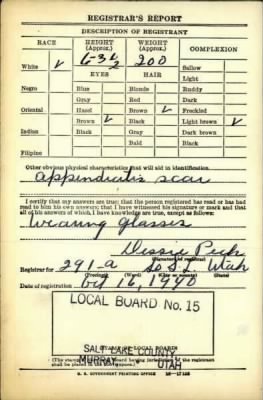 REGISTRAR'S REPORT
DESCRIPTION OF REGISTRANT
RACE HEIGHT (Approx.) WEIGHT (Approx.) COMPLEXION
White ✓ 6-3½ 200 Sallow
EYES HAIR Light
Negro Blue Blonde Ruddy
Gray Red Dark
Oriental Hazel Brown ✓ Freckled
Brown ✓ Black Light brown ✓
Indian Black Gray Dark brown
Bald Black
Filipino
Other obvious physical characteristics that will aid in identification
Appendicitis scar
I certify that my answers are true; that the person registered has read or has had
read to him his own answers; that I have witnessed his signature or mark and that
all of his answers of which I have knowledge are true, except as follows:
Wearing glasses
(Signature of registrar)
Registrar for 291-a So S.L. Utah
(Precinct) (Ward) (City or county) (State)
Date of registration Oct 16, 1940
LOCAL BOARD No. 15
SALT LAKE COUNTY
MURRAY UTAH
(STAMP OF LOCAL BOARD)
(The stamp of the Local Board having jurisdiction of the registrant
shall be placed in the above space.)
U. S. GOVERNMENT PRINTING OFFICE